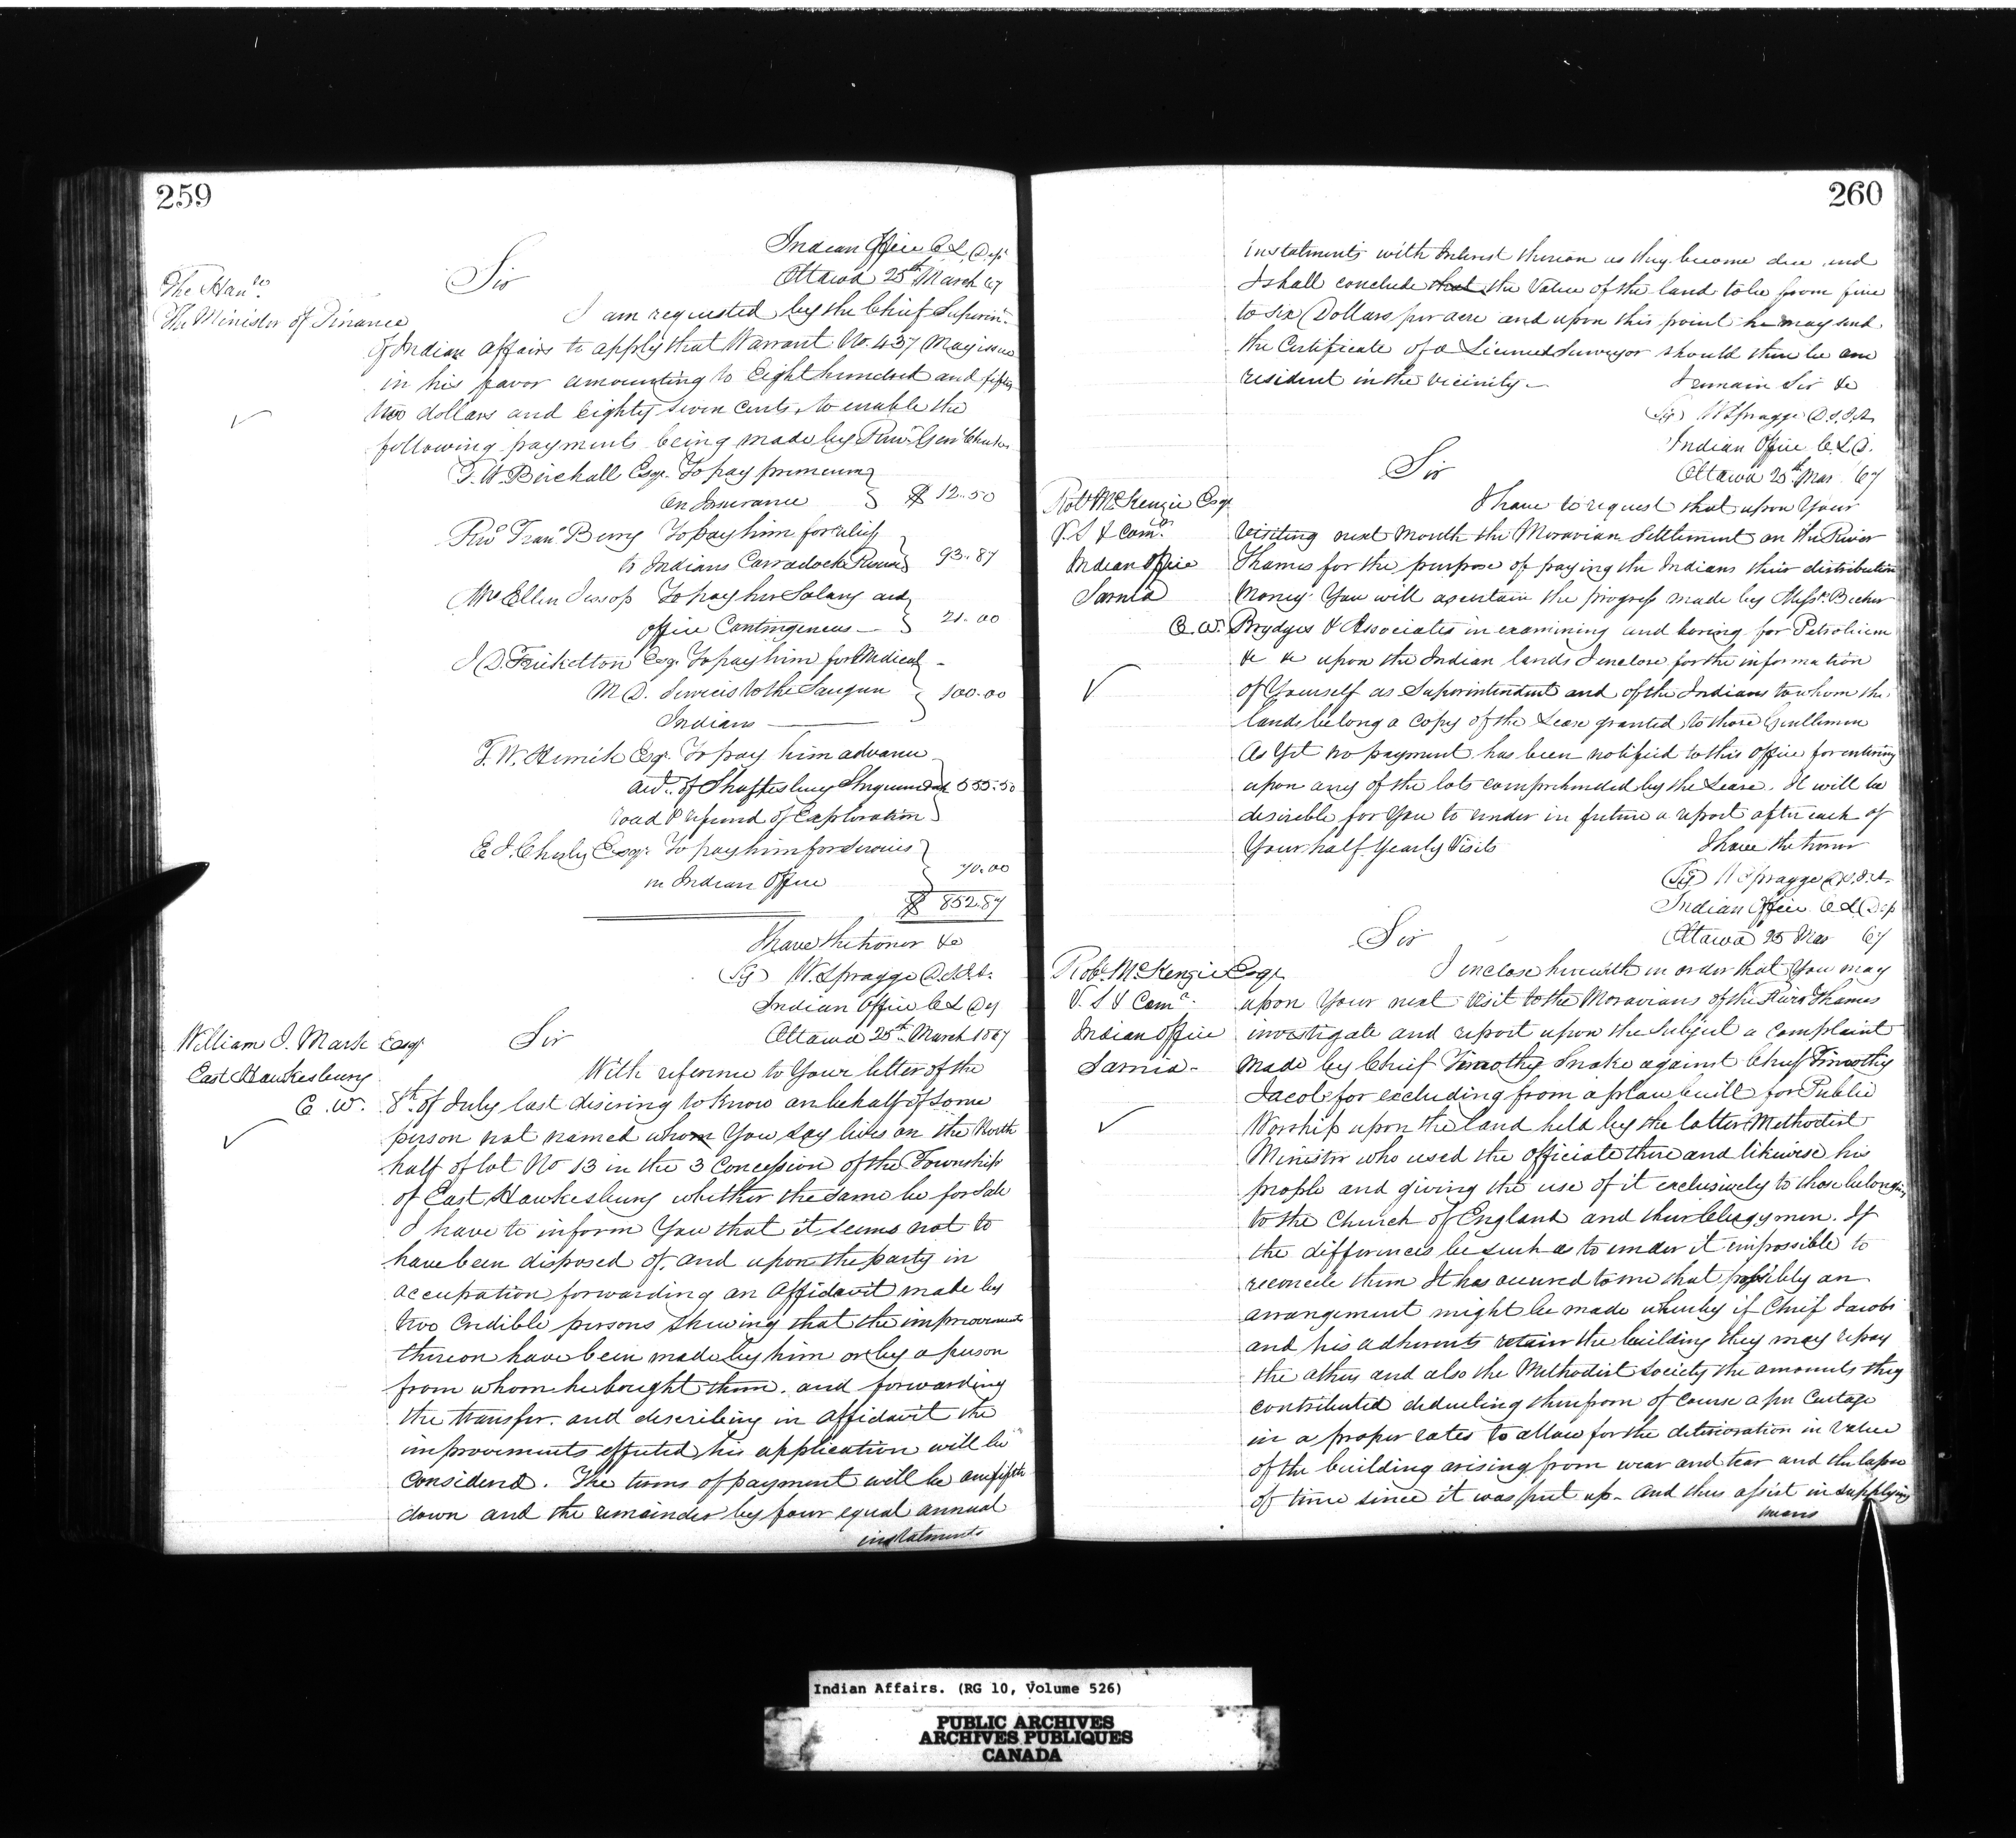 259
Indian Office C. L. Dept
Ottawa 25th March 67
The Honble
The Minister of Finance
Sir
I am requested by the Chief Superint
of Indian Affairs to apply that Warrant No. 437 May issue
in his favor amounting to Eight hundred and fifty
two dollars and eighty seven cents, to enable the
following payments being made by
T. W. Birchall Esqr. To pay premium
on Insurance $ 12.50
Revd Fran. Berry To pay him for relief
to Indians Carradock 93.87
Mrs Ellen Jessop To pay her Salary and
office Contingencies — 21.00
J. D. Frickelton Esqr. To pay him for Medical
M D. Services to the Saugeen 100.00
Indians —
T. W. Herrick Esqr. To pay him advance
acct. of Shaftesbury Sheguiandah 555.50
road & refund of Exploration
E. J. Chesly Esqr. To pay him for Services
in Indian Office 70.00
$ 852.87
I have the honor &c
(Sg) W. Spragge D.S.I.A.
Indian Office C L Dep
Ottawa 25th March 1867
William J. Marsh Esqr
East Hawkesbury
C. W.
Sir
With reference to Your letter of the
8th of July last desiring to know on behalf of some
person not named whom You say lives on the North
half of lot No 13 in the 3 Concession of the Township
of East Hawkesbury whether the same be for Sale
I have to inform You that it seems not to
have been disposed of, and upon the party in
occupation forwarding an Affidavit made by
two Credible persons shewing that the improvements
thereon have been made by him or by a person
from whom he bought them, and forwarding
the transfer, and describing in Affidavit the
improvements effected his application will be
Considered. The terms of payment will be one fifth
down and the remainder by four equal annual
instalments
260
instalments with Interest thereon as they become due and
I shall conclude that the Value of the land to be from five
to six Dollars per acre and upon this point he may send
the Certificate of a Licensed Surveyor should there be one
resident in the vicinity. —
I remain Sir &c
(Sg) W Spragge D.S.I.A.
Indian Office C. L. D.
Ottawa 25th Mar. 67
Robt McKenzie Esqr
V. S & Comr.
Indian Office
Sarnia
C. W.
Sir
I have to request that upon Your
visiting next Month the Moravian Settlement on the River
Thames for the purpose of paying the Indians their distribution
Money. You will ascertain the progress made by Messrs. Becher
Brydges & Associates in examining and boring for Petroleum
&c &c upon the Indian lands I enclose for the information
of Yourself as Superintendent and of the Indians to whom the
lands belong a copy of the Lease granted to those Gentlemen
As Yet no payment has been notified to this Office for entering
upon any of the lots comprehended by the Lease. It will be
desirable for You to render in future a report after each of
Your half Yearly Visits
I have the honor
(Sg) W Spragge D.S.I.A.
Indian Office C L Dep
Ottawa 25 Mar 67
Robt. McKenzie Esqr
V. S & Comr.
Indian Office
Sarnia —
Sir
I enclose herewith in order that You may
upon Your next Visit to the Moravians of the River Thames
investigate and report upon the subject a complaint
made by Chief Timothy Snake against Chief Timothy
Jacobs for excluding from a place built for Public
Worship upon the land held by the latter Methodist
Minister who used the officiate there and likewise his
people and giving the use of it exclusively to those belonging
to the Church of England and their Clergymen. If
the differences be such as to render it impossible to
reconcile them It has occured to me that possibly an
arrangement might be made whereby if Chief Jacobs
and his adherents retain the building they may repay
the others and also the Methodist Society the amounts they
contributed deducting therefrom of course a per Centage
in a proper rates to allow for the deterioration in Value
of the building arising from wear and tear and the lapse
of time since it was put up — and thus assist in supplying
means
Indian Affairs. (RG 10, Volume 526)
PUBLIC ARCHIVES
ARCHIVES PUBLIQUES
CANADA